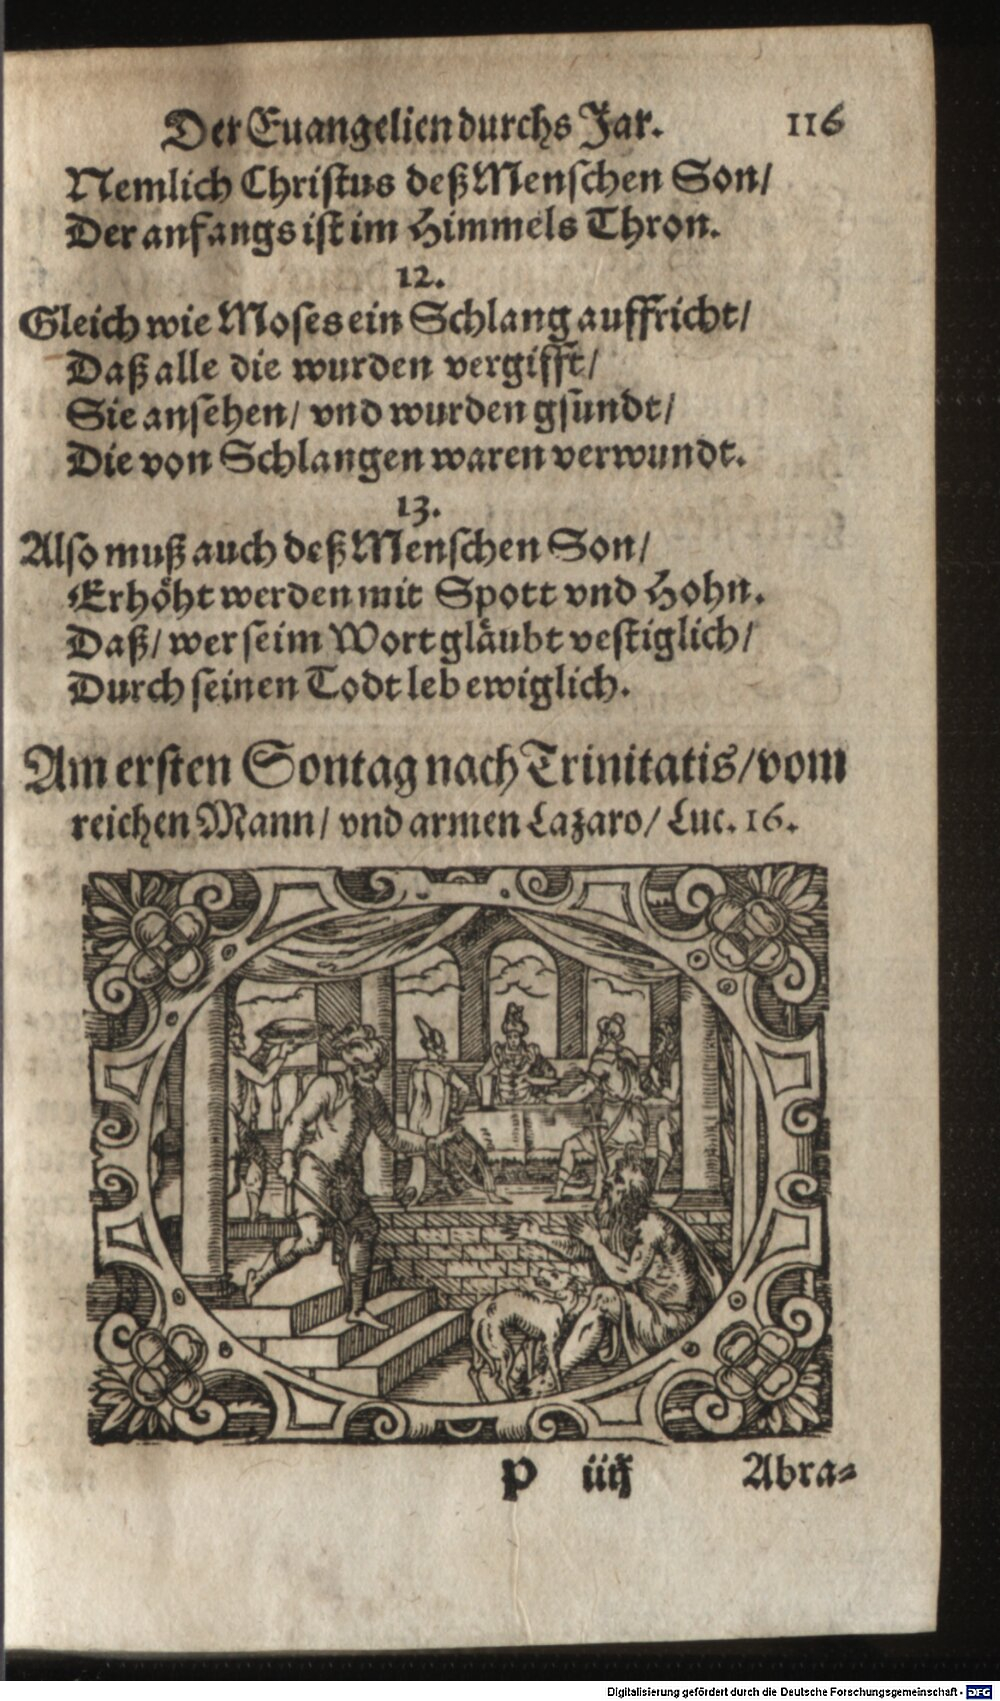 Der Euangelien durchs Jar. 116
Nemlich Christus deß Menschen Son/
Der anfangs ist im Himmels Thron.
12.
Gleich wie Moses ein Schlang auffricht/
Daß alle die wurden vergifft/
Sie ansehen/ vnd wurden gsundt/
Die von Schlangen waren verwundt.
13.
Also muß auch deß Menschen Son/
Erhöht werden mit Spott vnd Hohn.
Daß/ wer seim Wort gläubt vestiglich/
Durch seinen Todt leb ewiglich.
Am ersten Sontag nach Trinitatis/ vom
reichen Mann/ vnd armen Lazaro/ Luc. 16.
P iiij Abra-
Digitalisierung gefördert durch die Deutsche Forschungsgemeinschaft - DFG